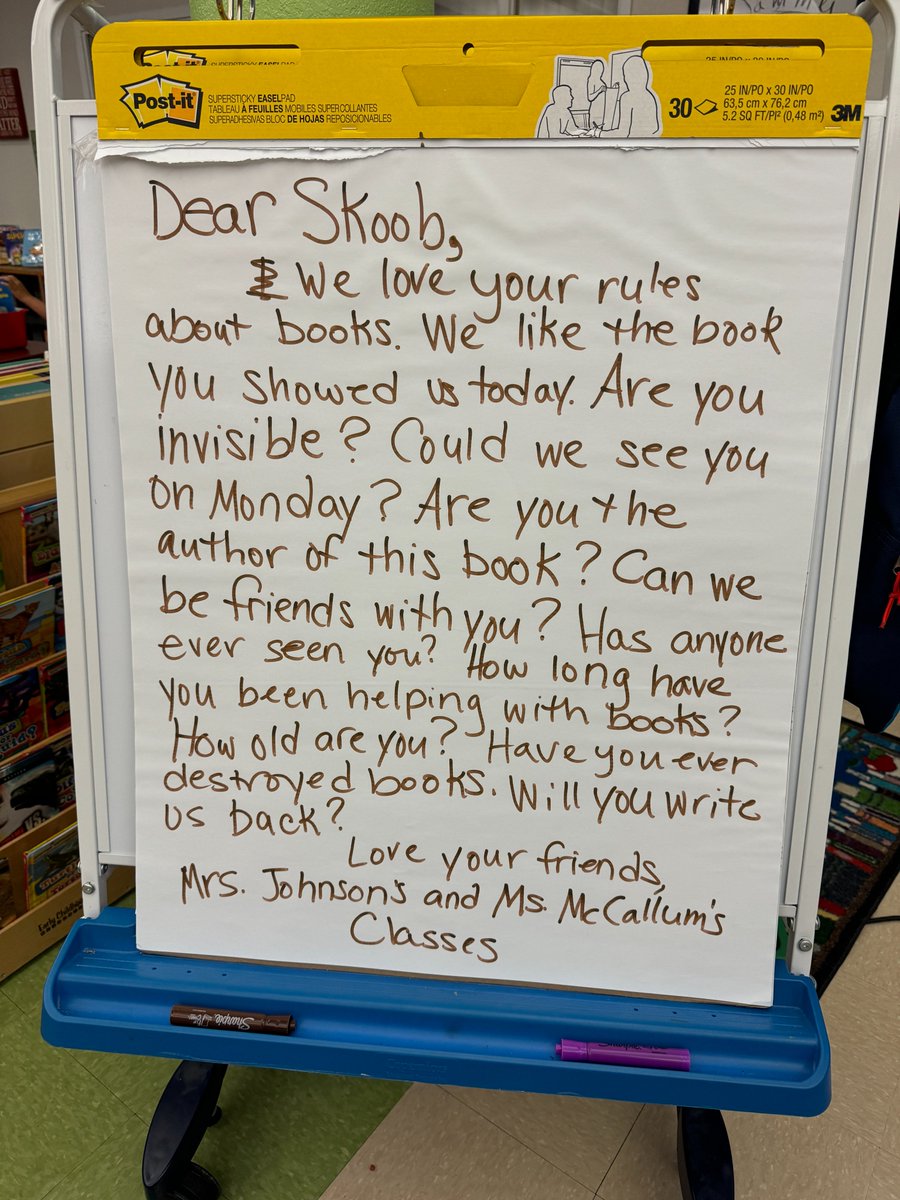 Post-it
SUPERSTICKY EASELPAD
TABLEAU À FEUILLES MOBILES SUPERCOLLANTES
SUPERADHESIVAS BLOC DE HOJAS REPOSICIONABLES
30
25 IN/PO x 30 IN/PO
63,5 cm x 76,2 cm
5.2 SQ FT/PI² (0,48 m²)
3M
Dear Skoob,
We love your rules
about books. We like the book
you showed us today. Are you
invisible? Could we see you
on Monday? Are you the
author of this book? Can we
be friends with you? Has anyone
ever seen you? How long have
you been helping with books?
How old are you? Have you ever
destroyed books. Will you write
us back?
Love your friends,
Mrs. Johnson's and Ms. McCallum's
Classes
Sharpie
Early Childhood